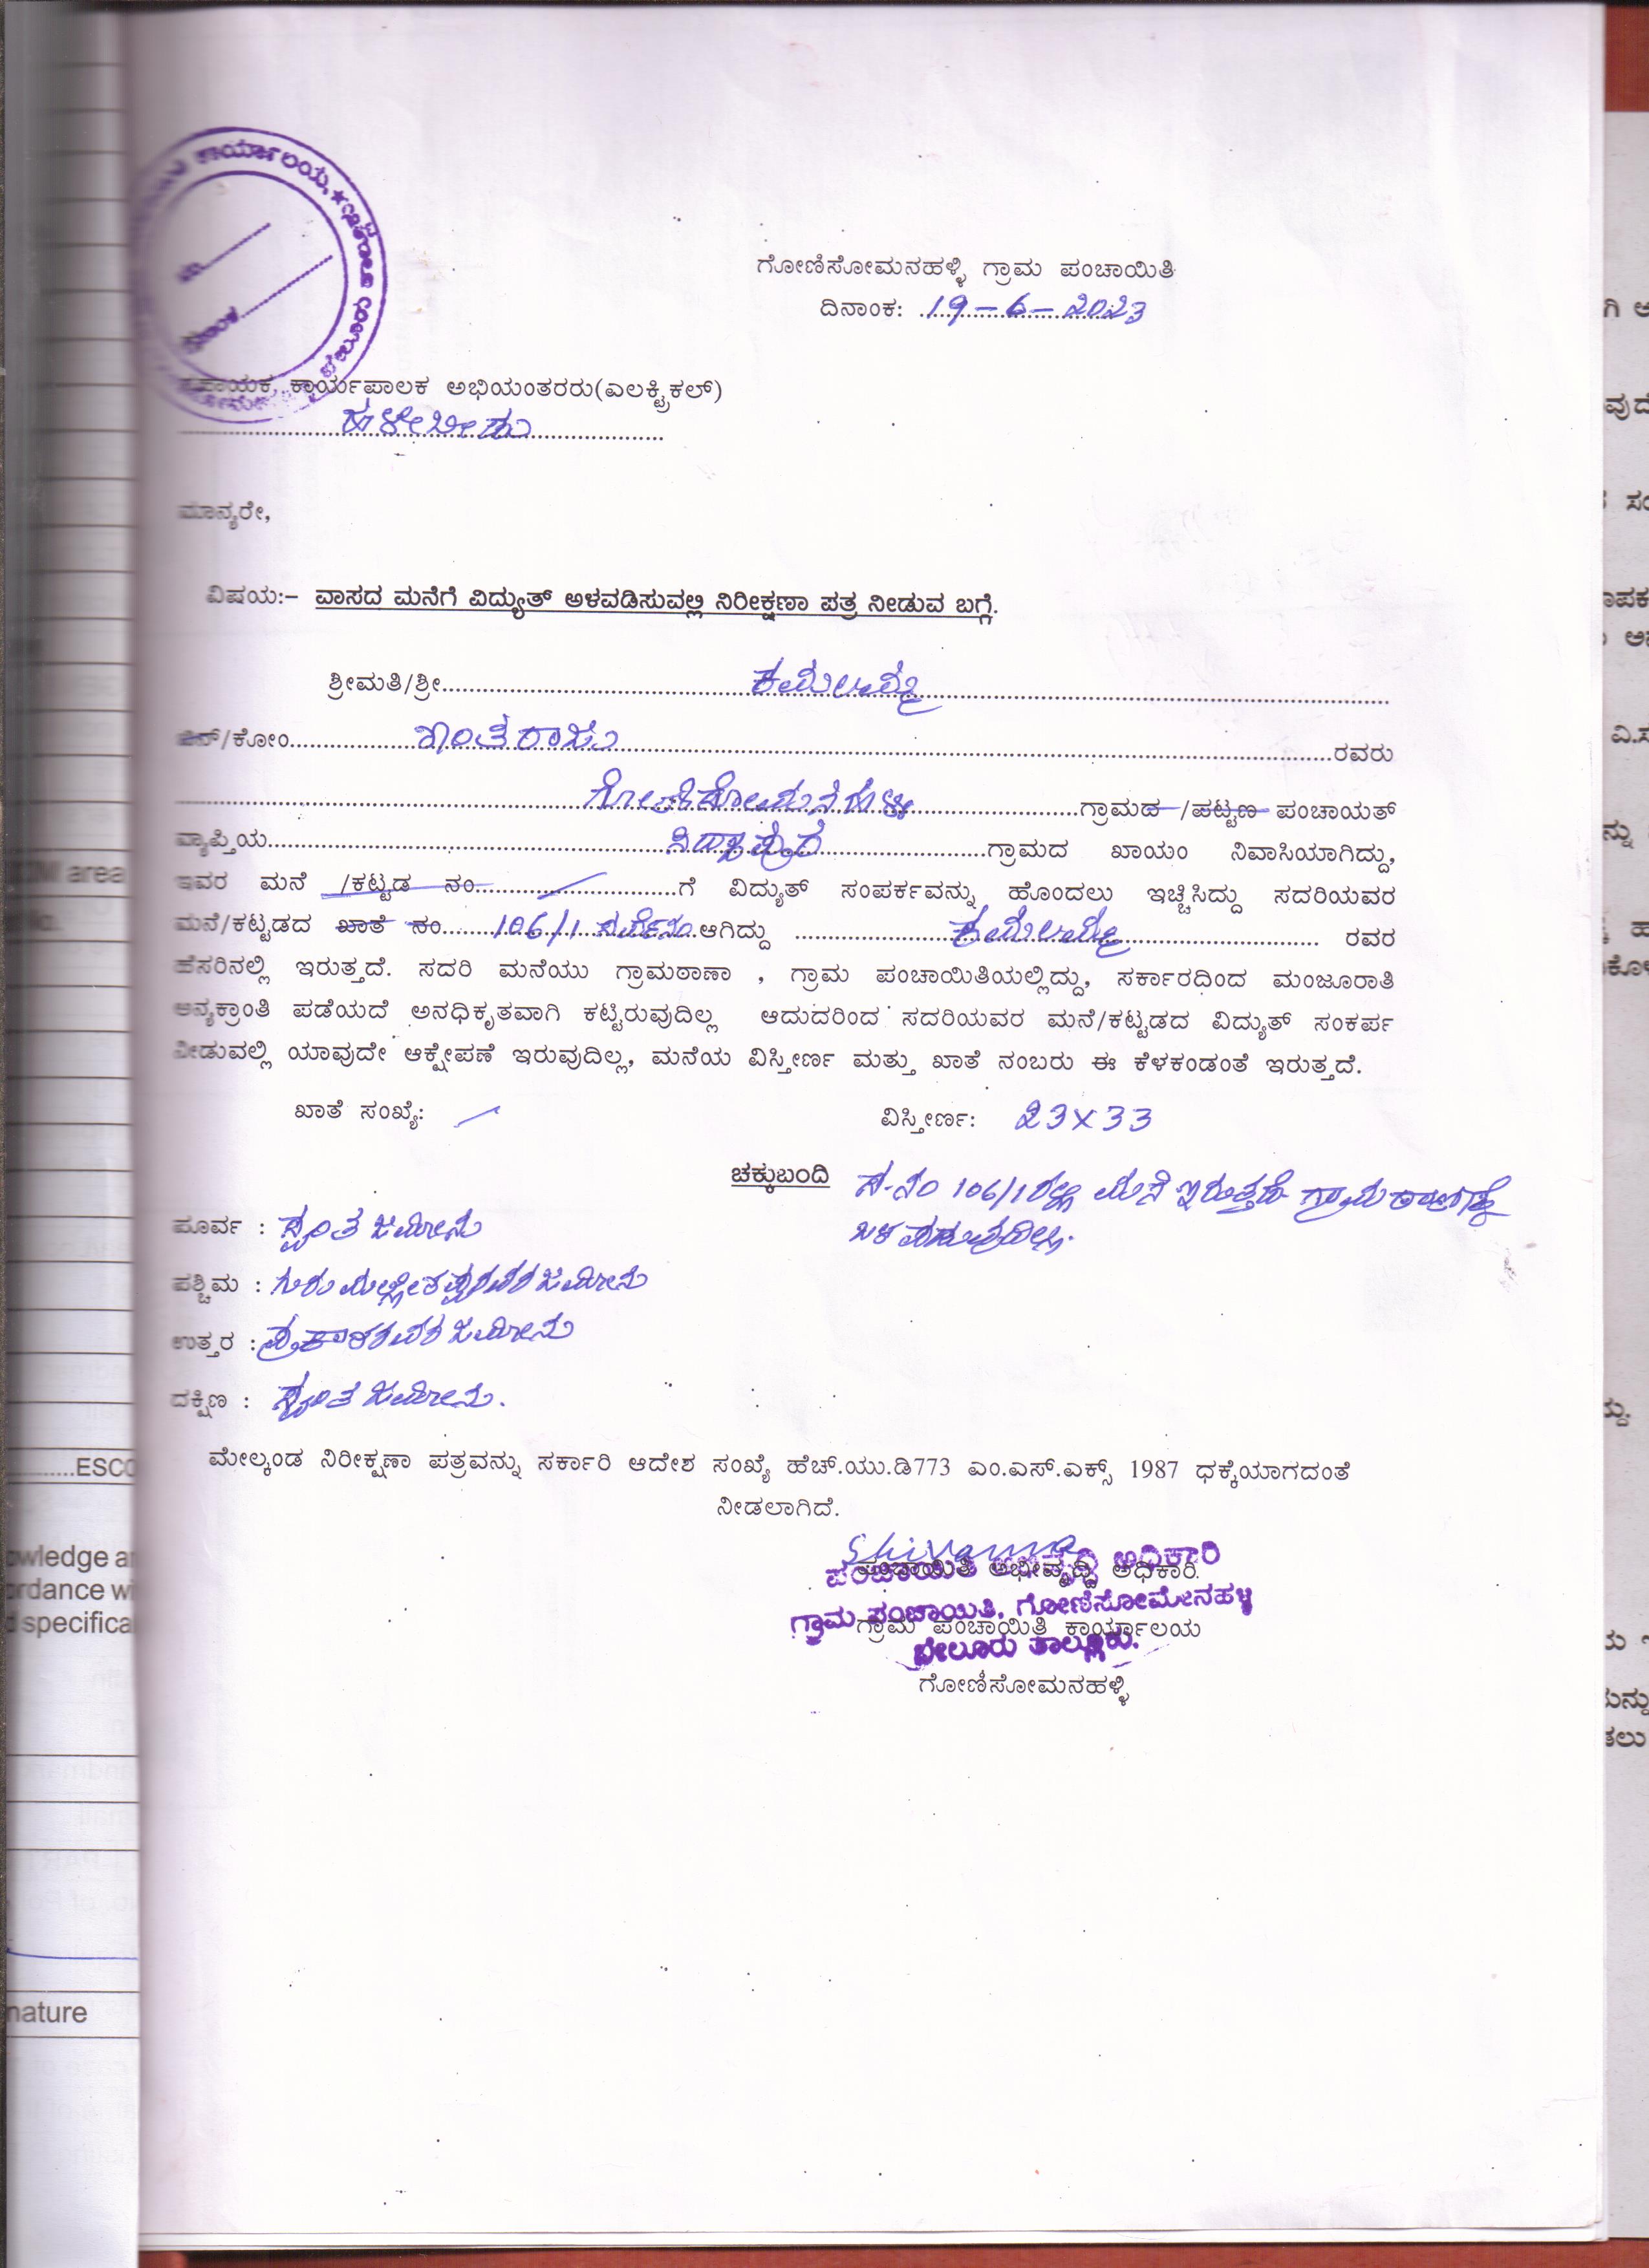 ಕಾರ್ಯಾಲಯ, ★
ಗೋಣಿಸೋಮನಹಳ್ಳಿ ಗ್ರಾಮ ಪಂಚಾಯಿತಿ
ದಿನಾಂಕ: 19-6-2023
ಸಹಾಯಕ ಕಾರ್ಯಪಾಲಕ ಅಭಿಯಂತರರು(ಎಲಕ್ಟ್ರಿಕಲ್)
ಹಳೇಬೀಡು
ಮಾನ್ಯರೇ,
ವಿಷಯ:- ವಾಸದ ಮನೆಗೆ ವಿದ್ಯುತ್ ಅಳವಡಿಸುವಲ್ಲಿ ನಿರೀಕ್ಷಣಾ ಪತ್ರ ನೀಡುವ ಬಗ್ಗೆ.
ಶ್ರೀಮತಿ/ಶ್ರೀ
ಬಿನ್/ಕೋಂ ಕಾಂತರಾಜು ರವರು
ಗೋಣಿಸೋಮನಹಳ್ಳಿ ಗ್ರಾಮದ /ಪಟ್ಟಣ ಪಂಚಾಯತ್
ವ್ಯಾಪ್ತಿಯ ಸಿದ್ದಾಪುರ ಗ್ರಾಮದ ಖಾಯಂ ನಿವಾಸಿಯಾಗಿದ್ದು,
ಇವರ ಮನೆ /ಕಟ್ಟಡ ನಂ ಗೆ ವಿದ್ಯುತ್ ಸಂಪರ್ಕವನ್ನು ಹೊಂದಲು ಇಚ್ಚಿಸಿದ್ದು ಸದರಿಯವರ
ಮನೆ/ಕಟ್ಟಡದ ಖಾತೆ ನಂ 106/1 ಸರ್ವೆನಂ ಆಗಿದ್ದು ರವರ
ಹೆಸರಿನಲ್ಲಿ ಇರುತ್ತದೆ. ಸದರಿ ಮನೆಯು ಗ್ರಾಮಠಾಣಾ , ಗ್ರಾಮ ಪಂಚಾಯಿತಿಯಲ್ಲಿದ್ದು, ಸರ್ಕಾರದಿಂದ ಮಂಜೂರಾತಿ
ಅನ್ಯಕ್ರಾಂತಿ ಪಡೆಯದೆ ಅನಧಿಕೃತವಾಗಿ ಕಟ್ಟಿರುವುದಿಲ್ಲ ಆದುದರಿಂದ ಸದರಿಯವರ ಮನೆ/ಕಟ್ಟಡದ ವಿದ್ಯುತ್ ಸಂಕರ್ಪ
ನೀಡುವಲ್ಲಿ ಯಾವುದೇ ಆಕ್ಷೇಪಣೆ ಇರುವುದಿಲ್ಲ, ಮನೆಯ ವಿಸ್ತೀರ್ಣ ಮತ್ತು ಖಾತೆ ನಂಬರು ಈ ಕೆಳಕಂಡಂತೆ ಇರುತ್ತದೆ.
ಖಾತೆ ಸಂಖ್ಯೆ: ವಿಸ್ತೀರ್ಣ: 23x33
ಚಕ್ಕುಬಂದಿ ಸ.ನಂ 106/1ರಲ್ಲಿ ಮನೆ ಇರುತ್ತದೆ ಗ್ರಾಮಠಾಣಕ್ಕೆ
ಒಳಪಡುವುದಿಲ್ಲ.
ಪೂರ್ವ : ಸ್ವಂತ ಜಮೀನು
ಪಶ್ಚಿಮ : ಜಮೀನು
ಉತ್ತರ : ಜಮೀನು
ದಕ್ಷಿಣ : ಸ್ವಂತ ಜಮೀನು.
ಮೇಲ್ಕಂಡ ನಿರೀಕ್ಷಣಾ ಪತ್ರವನ್ನು ಸರ್ಕಾರಿ ಆದೇಶ ಸಂಖ್ಯೆ ಹೆಚ್.ಯು.ಡಿ773 ಎಂ.ಎಸ್.ಎಕ್ಸ್ 1987 ಧಕ್ಕೆಯಾಗದಂತೆ
ನೀಡಲಾಗಿದೆ.
ಪಂಚಾಯಿತಿ ಅಭಿವೃದ್ಧಿ ಅಧಿಕಾರಿ
ಪಂಚಾಯಿತಿ ಅಭಿವೃದ್ಧಿ ಅಧಿಕಾರಿ.
ಗ್ರಾಮ ಪಂಚಾಯಿತಿ, ಗೋಣಿಸೋಮೇನಹಳ್ಳಿ
ಗ್ರಾಮ ಪಂಚಾಯಿತಿ ಕಾರ್ಯಾಲಯ
ಬೇಲೂರು ತಾಲ್ಲೂಕು.
ಗೋಣಿಸೋಮನಹಳ್ಳಿ
M area
ESCO
specifica
nature